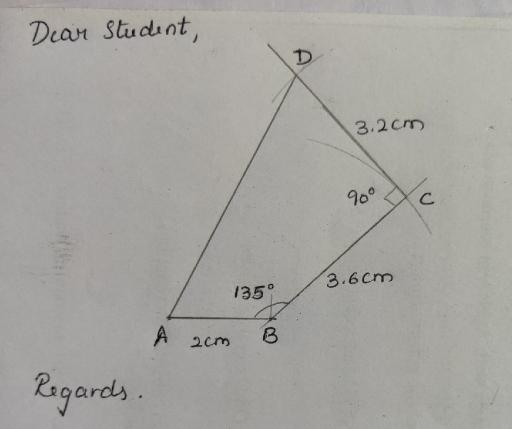 Dear Student,
D
3.2cm
90°
C
135°
3.6cm
A
2cm
B
Regards.